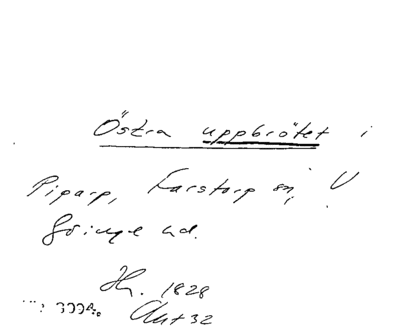 Östra uppbrötet i
Piparp, Farstorp sn, V
Göinge hd.
Hh. 1828
Akt 32